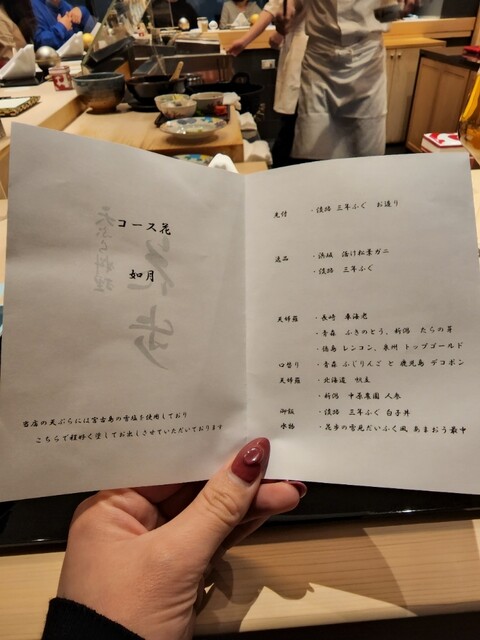 コース花
如月
天ぷら料理
当店の天ぷらには宮古島の雪塩を使用しており
こちらで程好く塗してお出しさせていただいております
先付 ・淡路 三年ふぐ お造り
逸品 ・浜坂 活け松葉ガニ
・淡路 三年ふぐ
天婦羅 ・長崎 車海老
・青森 ふきのとう、新潟 たらの芽
・徳島 レンコン、泉州 トップゴールド
口替り ・青森 ふじりんご と 鹿児島 デコポン
天婦羅 ・北海道 帆立
・新潟 中原農園 人参
御飯 ・淡路 三年ふぐ 白子丼
水物 ・花歩の雪見だいふく風 あまおう最中